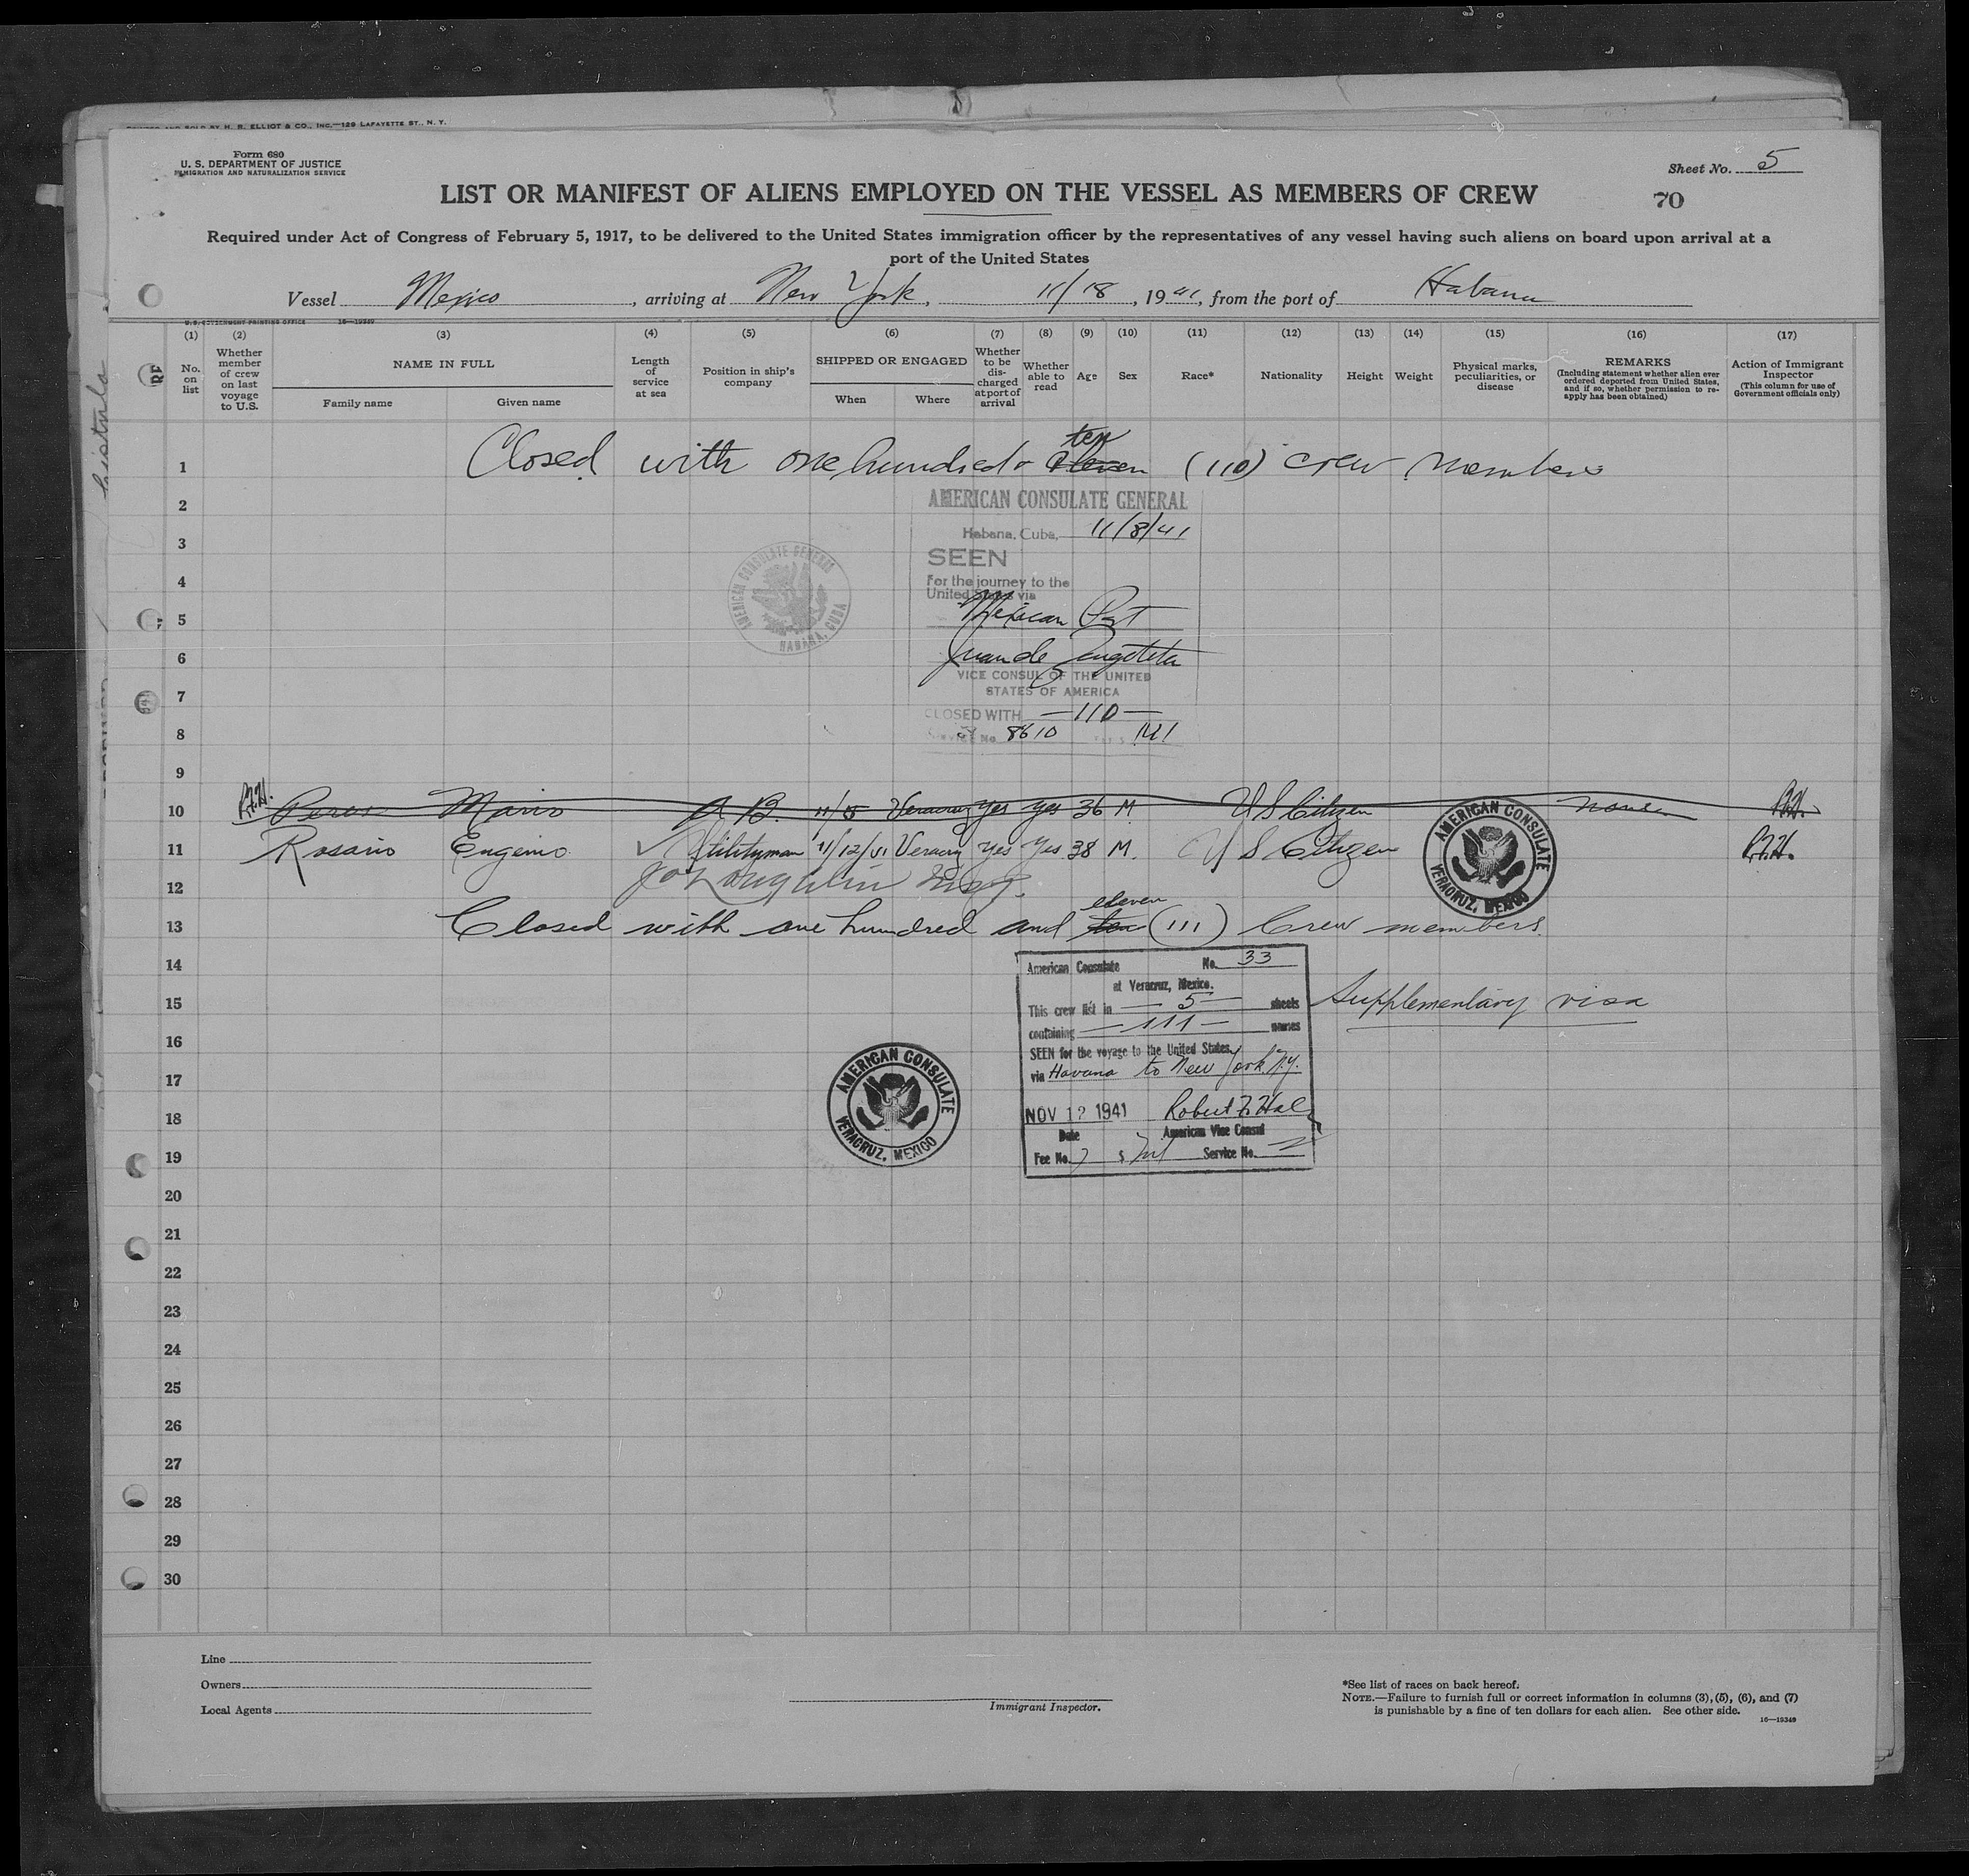 PRINTED AND SOLD BY H. R. ELLIOT & CO., INC.—129 LAFAYETTE ST., N. Y.
Form 680
U. S. DEPARTMENT OF JUSTICE
IMMIGRATION AND NATURALIZATION SERVICE
Sheet No. 5
LIST OR MANIFEST OF ALIENS EMPLOYED ON THE VESSEL AS MEMBERS OF CREW
70
Required under Act of Congress of February 5, 1917, to be delivered to the United States immigration officer by the representatives of any vessel having such aliens on board upon arrival at a
port of the United States
Vessel Mexico, arriving at New York, 11/18, 1941, from the port of Habana
U.S. GOVERNMENT PRINTING OFFICE 16—19349
(1) (2) (3) (4) (5) (6) (7) (8) (9) (10) (11) (12) (13) (14) (15) (16) (17)
No. on list
Whether member of crew on last voyage to U.S.
NAME IN FULL
Family name
Given name
Length of service at sea
Position in ship's company
SHIPPED OR ENGAGED
When
Where
Whether to be discharged at port of arrival
Whether able to read
Age
Sex
Race*
Nationality
Height
Weight
Physical marks, peculiarities, or disease
REMARKS
(Including statement whether alien ever ordered deported from United States, and if so, whether permission to reapply has been obtained)
Action of Immigrant Inspector
(This column for use of Government officials only)
ten
1 Closed with one hundred & eleven (110) crew members
2 AMERICAN CONSULATE GENERAL
3 Habana, Cuba, 11/8/41
SEEN
4 For the journey to the
United States via
5 Mexican Port
6 Juan de Zengotita
VICE CONSUL OF THE UNITED
7 STATES OF AMERICA
CLOSED WITH —110—
8 Service No. 8610
AMERICAN CONSULATE GENERAL HABANA, CUBA
9
10 R.F.H. Mario A B. 11/5 Veracruz yes yes 36 M U S Citizen none R.F.H.
11 Rosario Eugenio Utilityman 11/12/41 Veracruz yes yes 38 M. U S Citizen R.F.H.
AMERICAN CONSULATE VERACRUZ, MEXICO
12
eleven
13 Closed with one hundred and ten (111) Crew members.
14 American Consulate No. 33
at Veracruz, Mexico.
15 This crew list in —5— sheets Supplementary visa
containing —111— names
16 SEEN for the voyage to the United States,
17 via Havana to New York, N.Y.
18 NOV 12 1941 Robert F. Hale
Date American Vice Consul
19 Fee No. $ Service No.
AMERICAN CONSULATE VERACRUZ, MEXICO
20
21
22
23
24
25
26
27
28
29
30
Line
Owners
Local Agents
Immigrant Inspector.
*See list of races on back hereof.
NOTE.—Failure to furnish full or correct information in columns (3), (5), (6), and (7)
is punishable by a fine of ten dollars for each alien. See other side.
16—19349